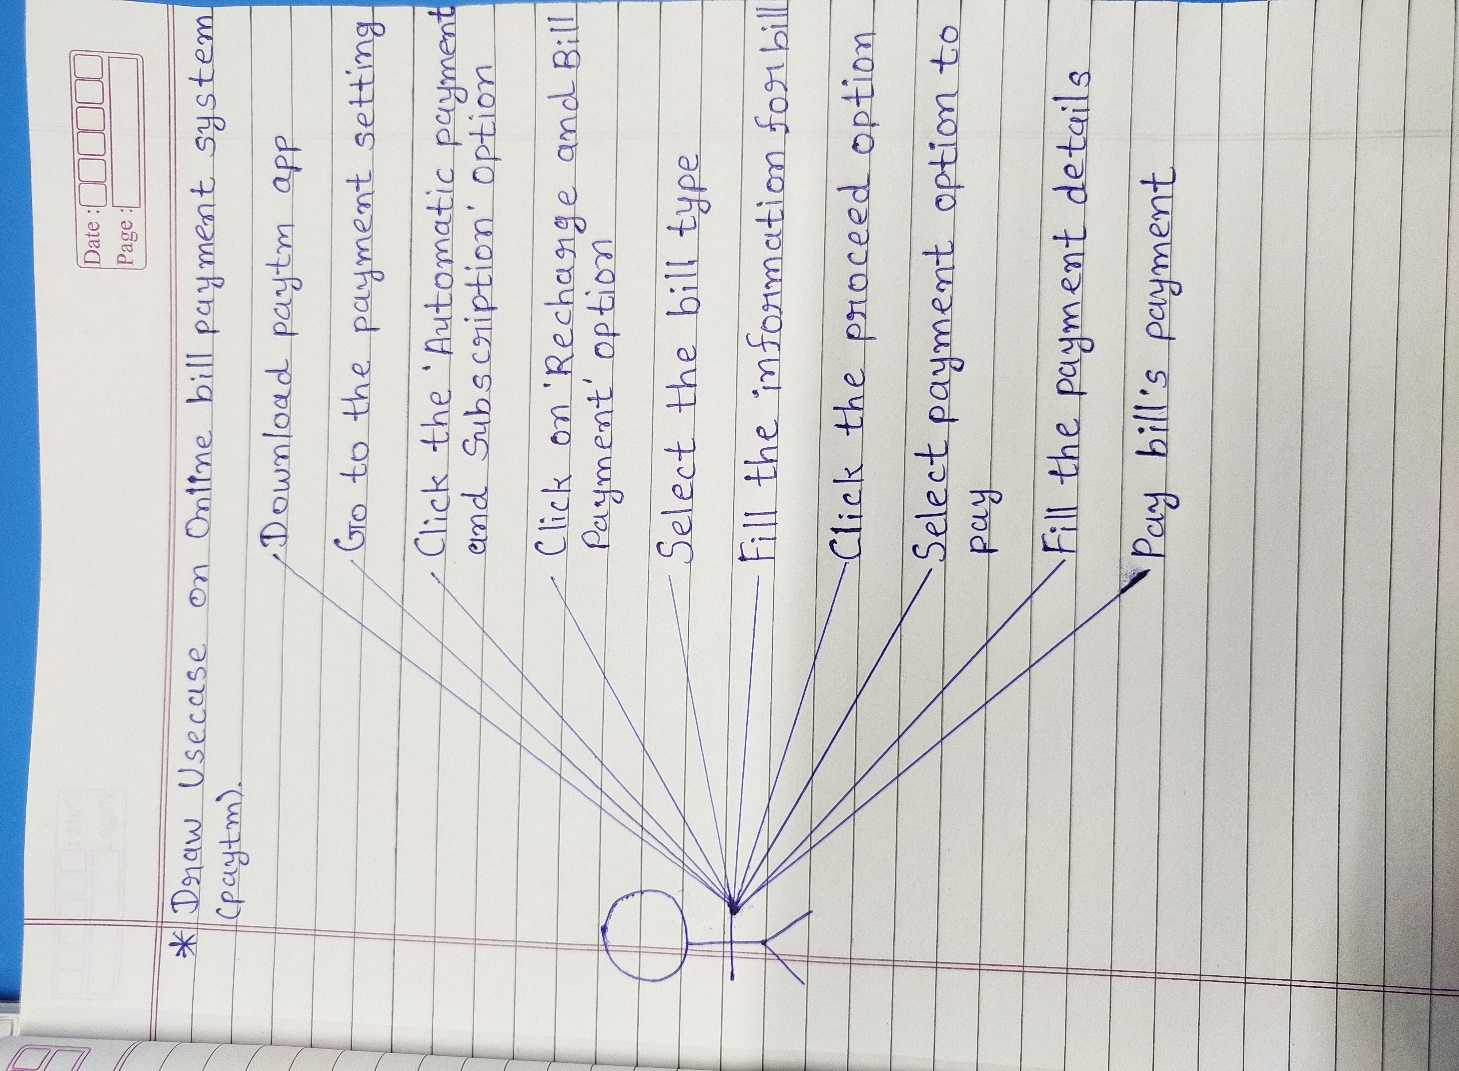 Date :
Page :
* Draw Usecase on Online bill payment system
(paytm).
Download paytm app
Go to the payment setting
Click the 'Automatic payment
and Subscription' option
Click on 'Recharge and Bill
Payment' option
Select the bill type
Fill the information for bill
Click the proceed option
Select payment option to
pay
Fill the payment details
Pay bill's payment